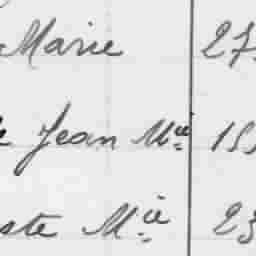 Marie 27
Jean Mie 155
ste Mie 23